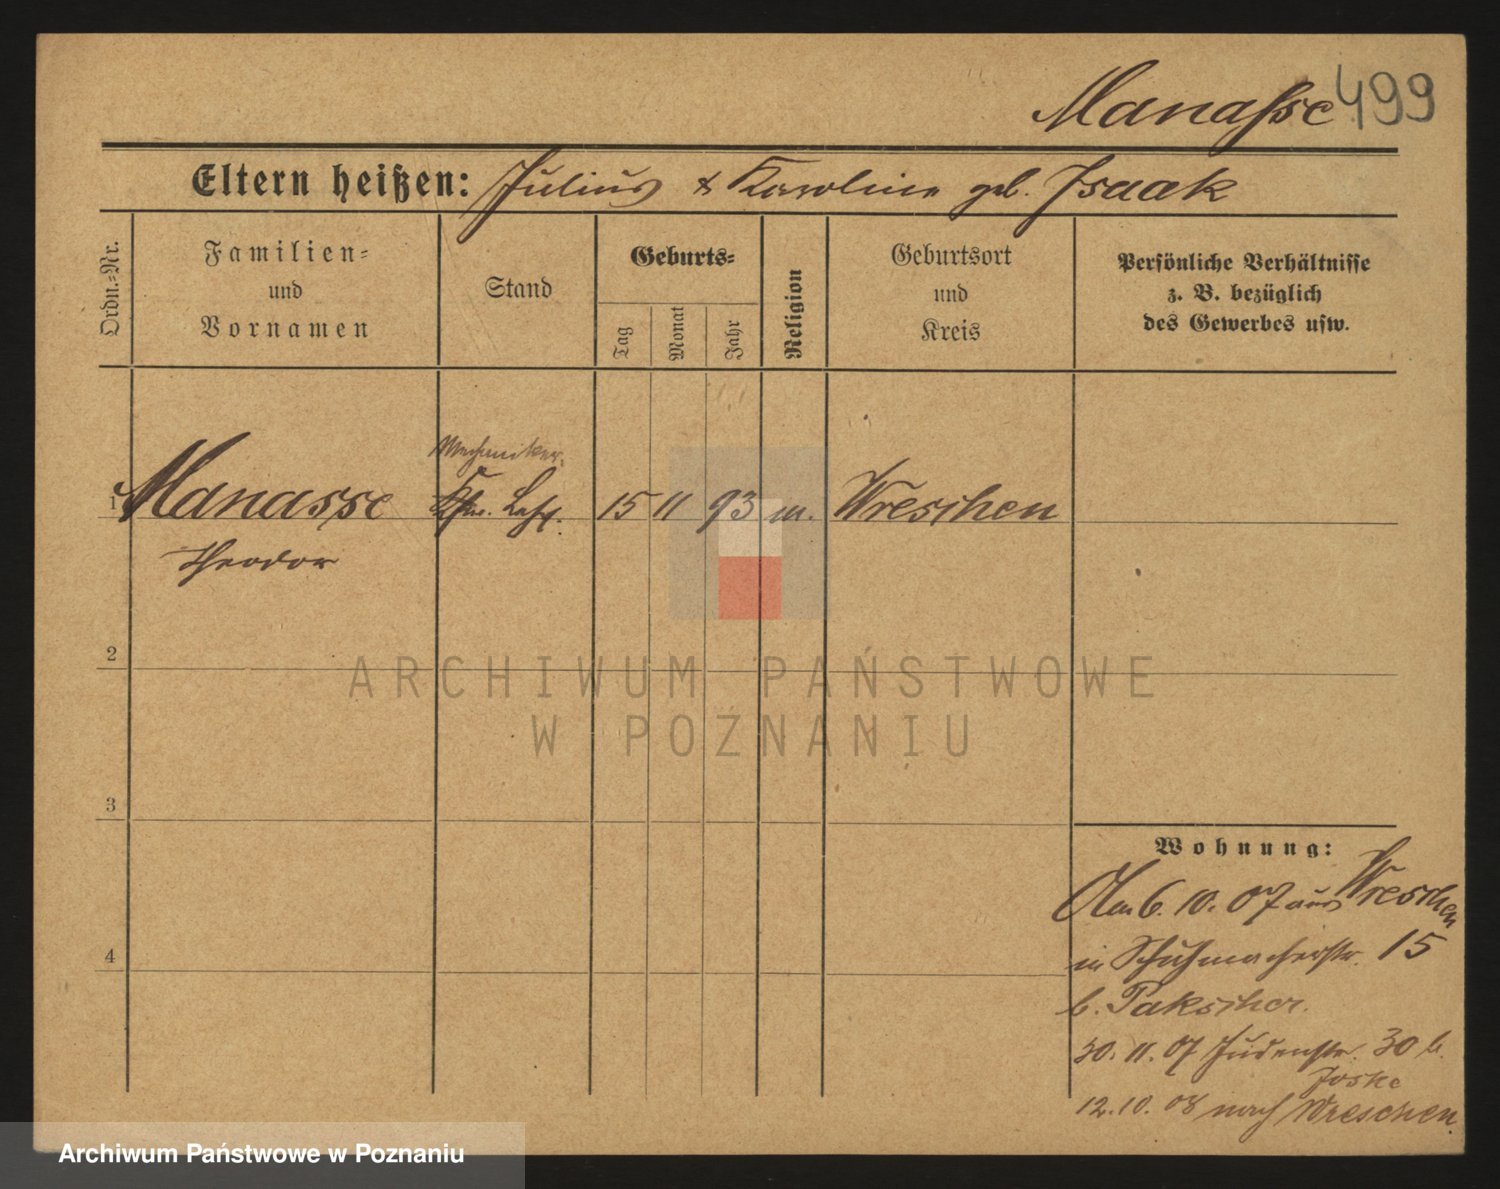 Manasse 499
Eltern heißen: Julius & Karoline geb. Isaak
Ordn.-Nr.
Familien-
und
Vornamen
Stand
Geburts-
Tag
Monat
Jahr
Religion
Geburtsort
und
Kreis
Persönliche Verhältnisse
z. B. bezüglich
des Gewerbes usw.
Mechaniker
1 Manasse Kfm. 15 11 93 m. Wreschen
Theodor
2
3
4
ARCHIWUM PAŃSTWOWE
W POZNANIU
Wohnung:
Am 6. 10. 07 aus Wreschen
in Schuhmacherstr. 15
b. Pakscher.
30. 11. 07 Judenstr. 30 b.
Joske
12. 10. 08 nach Wreschen.
Archiwum Państwowe w Poznaniu